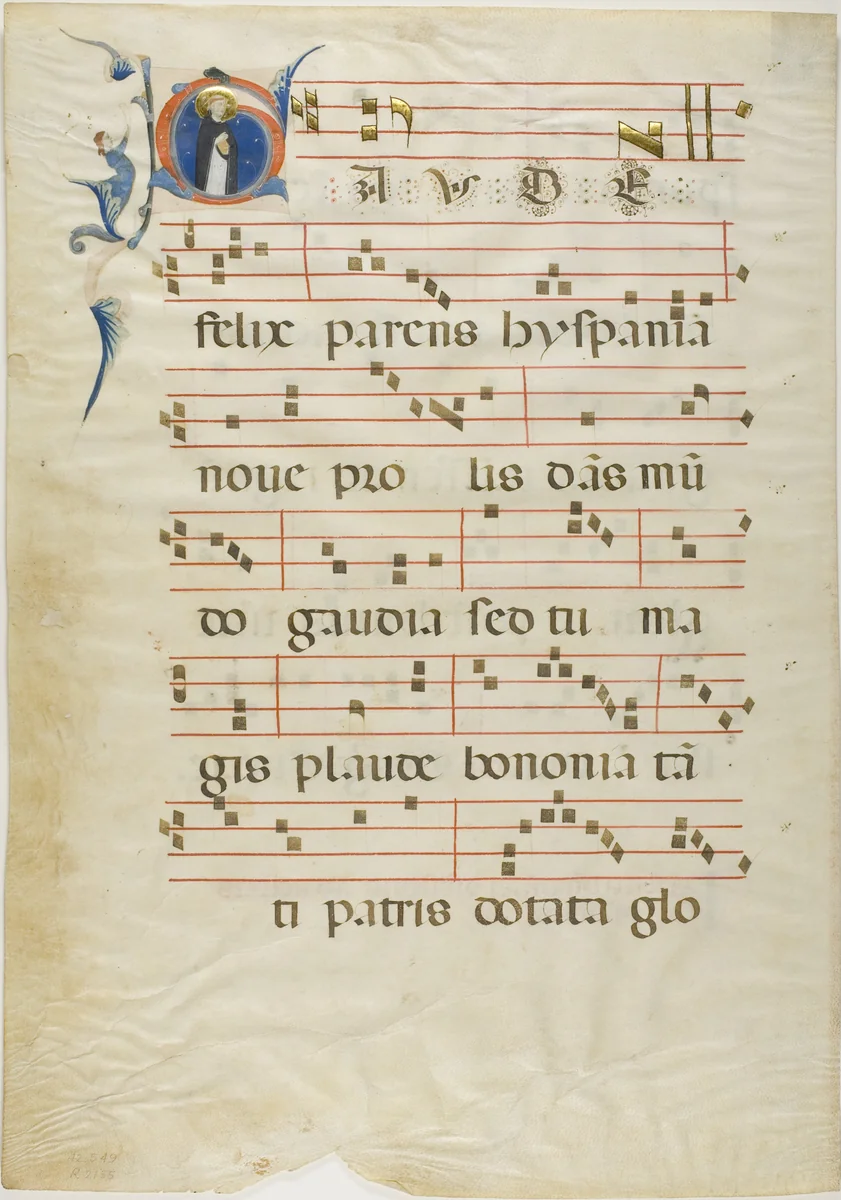 GAUDE
felix parens hyspania
noue pro lis dãs mũ
do gaudia sed tu ma
gis plaude bononia tã
ti patris dotata glo
12.549
R2135